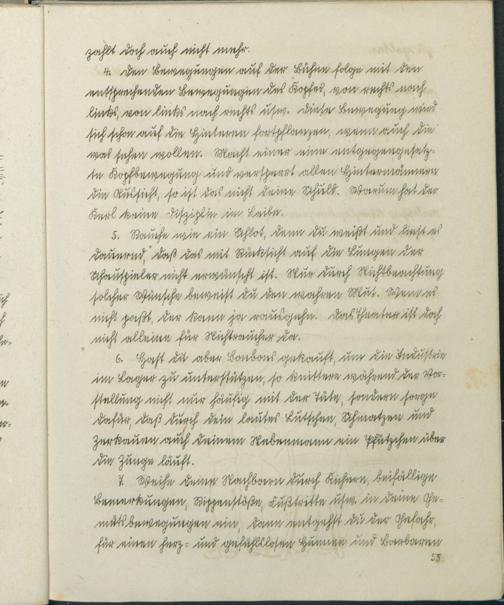 zahlt doch auch nicht mehr.
4. Den Bewegungen auf der Bühne folge mit den
entsprechenden Bewegungen des Kopfes, von rechts nach
links, von links nach rechts usw. Diese Bewegung wird
sich schon auf die Hinteren fortpflanzen, wenn auch die
was sehen wollen. Macht einer eine entgegengesetz-
te Kopfbewegung und versperrt allen Hintermännern
die Aussicht, so ist das nicht deine Schuld. Warum hat der
Kerl keine Disziplin im Leibe.
5. Rauche wie ein Schlot, denn du weißt und liest es
dauernd, daß das mit Rücksicht auf die Lungen der
Schauspieler nicht erwünscht ist. Nur durch Nichtbeachtung
solcher Wünsche beweist du den wahren Mut. Wem es
nicht paßt, der kann ja rausgehn. Das Theater ist doch
nicht alleine für Nichtraucher da.
6. Hast du aber Bonbons gekauft, um die Industrie
im Lager zu unterstützen, so knittere während der Vor-
stellung nicht nur häufig mit der Tüte, sondern sorge
dafür, daß durch dein lautes Lutschen, Schmatzen und
Zerkauen auch deinem Nebenmann ein Pfützchen über
die Zunge läuft.
7. Weihe deine Nachbarn durch Kichern, beifällige
Bemerkungen, Rippenstöße, Fußtritte usw. in deine Ge-
mütsbewegungen ein, dann entgehst du der Gefahr,
für einen herz- und gefühllosen Hunnen und Barbaren
53